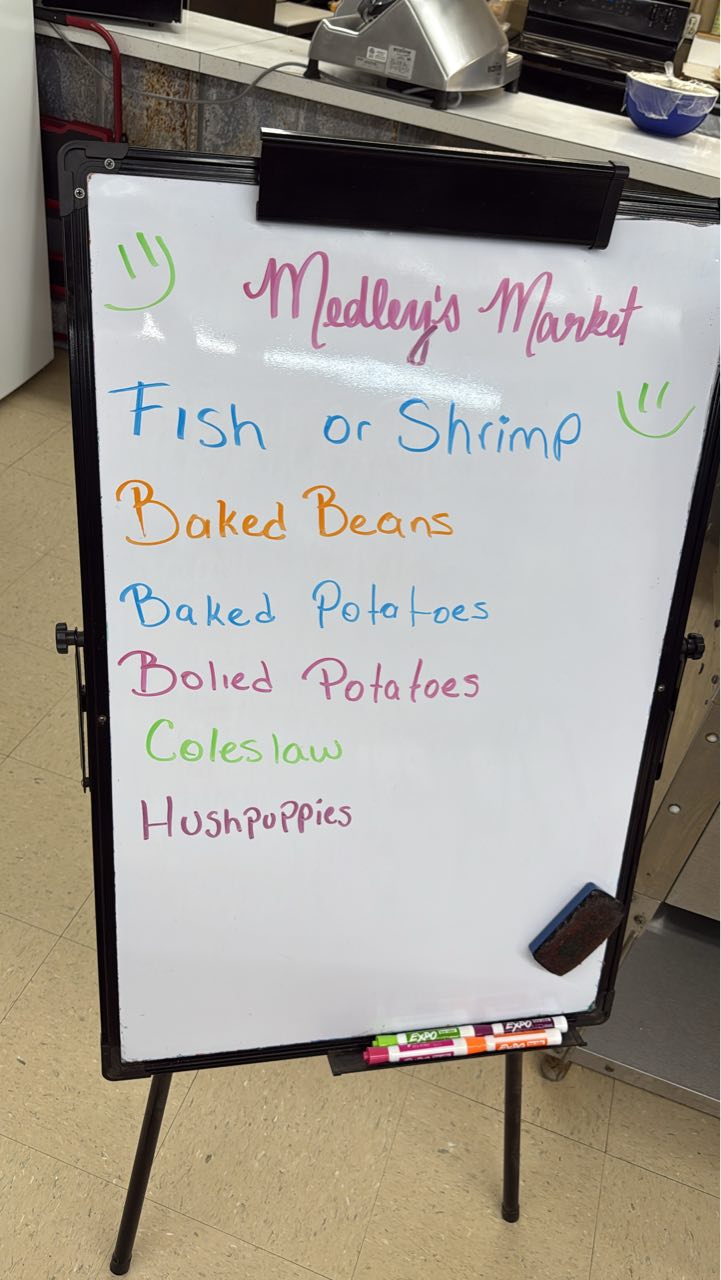 Medley's Market
Fish or Shrimp
Baked Beans
Baked Potatoes
Bolied Potatoes
Coleslaw
Hushpuppies
EXPO EXPO